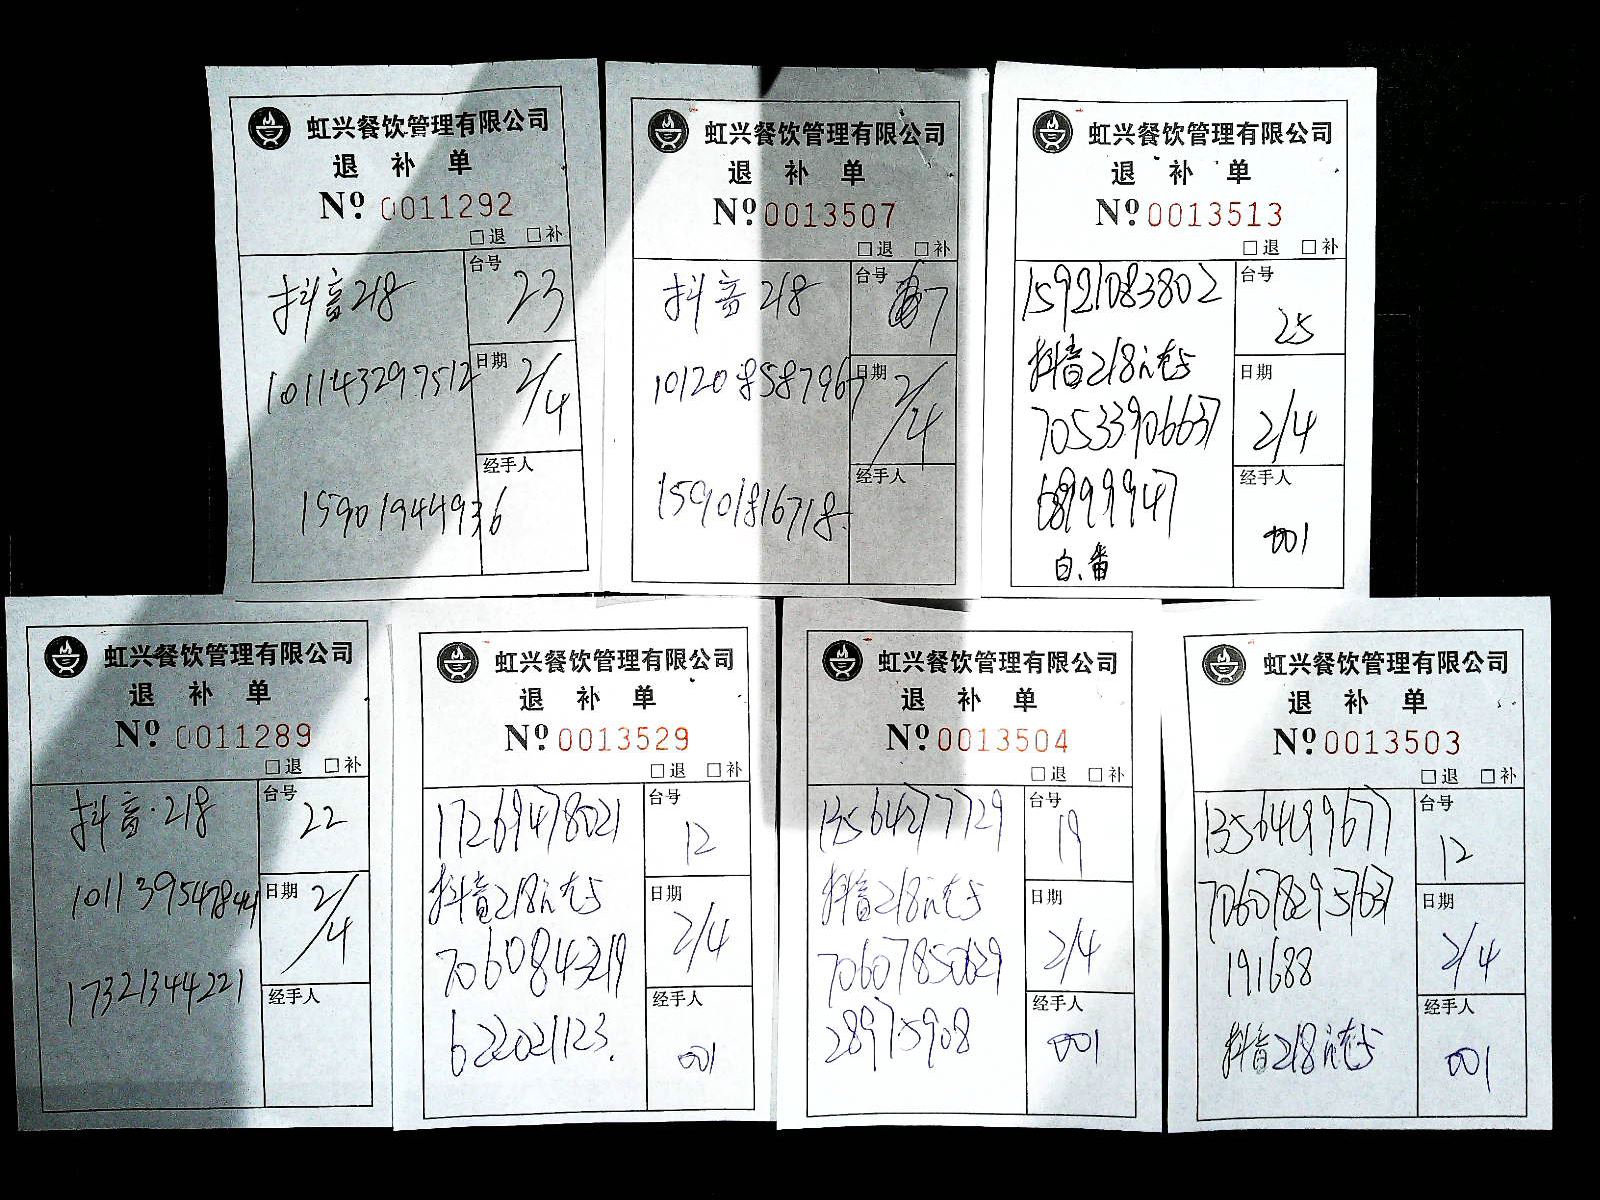 虹兴餐饮管理有限公司
退 补 单
Nº 0011292
□退 □补
抖音218
台号
23
101143297512
日期
2/4
经手人
15901944936
虹兴餐饮管理有限公司
退 补 单
Nº 0013507
□退 □补
抖音218
台号
7
101208587967
日期
2/4
15901816718
经手人
虹兴餐饮管理有限公司
退 补 单
Nº 0013513
□退 □补
15921083802
台号
25
抖音218元
日期
2/4
70533906637
68999947
经手人
001
白、番
虹兴餐饮管理有限公司
退 补 单
Nº 0011289
□退 □补
抖音·218
台号
22
101139547844
日期
2/4
17321344221
经手人
虹兴餐饮管理有限公司
退 补 单
Nº 0013529
□退 □补
17269478021
台号
12
抖音218元
日期
2/4
7060843219
622021123.
经手人
001
虹兴餐饮管理有限公司
退 补 单
Nº 0013504
□退 □补
13564277729
台号
19
抖音218元
日期
2/4
70607850629
28975908
经手人
001
虹兴餐饮管理有限公司
退 补 单
Nº 0013503
□退 □补
13564499677
台号
12
日期
2/4
191688
经手人
001
抖音218元